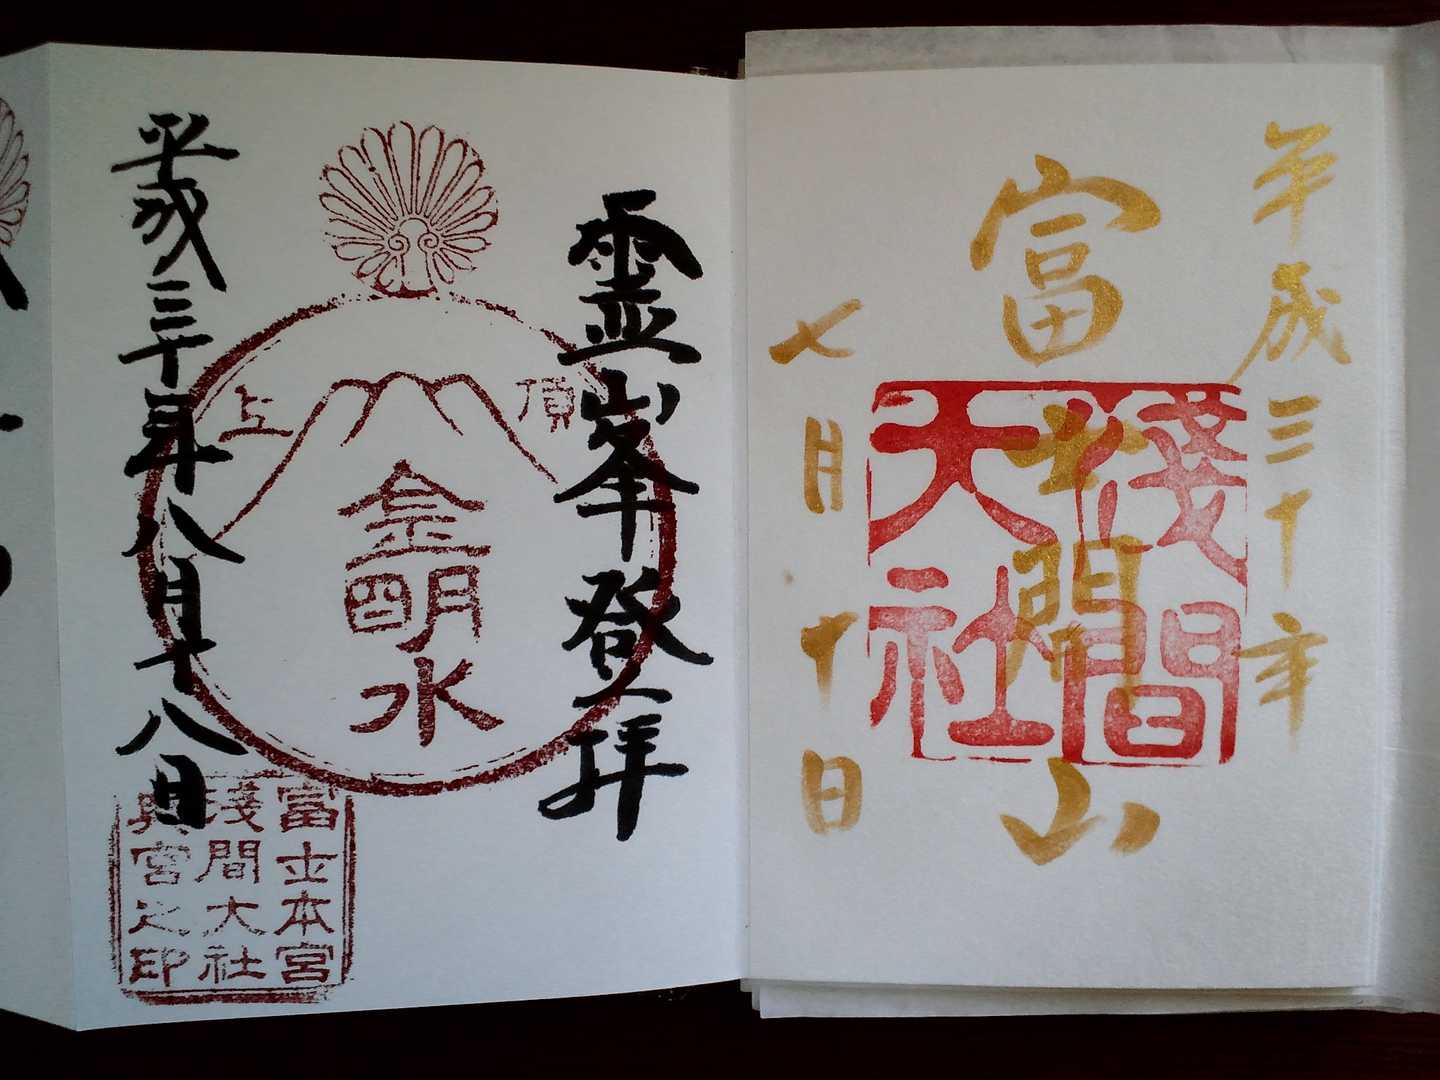 平成三十年
富士開山
七月十日
淺間
大社
霊峯登拝
頂上
金明水
平成三十年八月十八日
富士本宮
淺間大社
奥宮之印